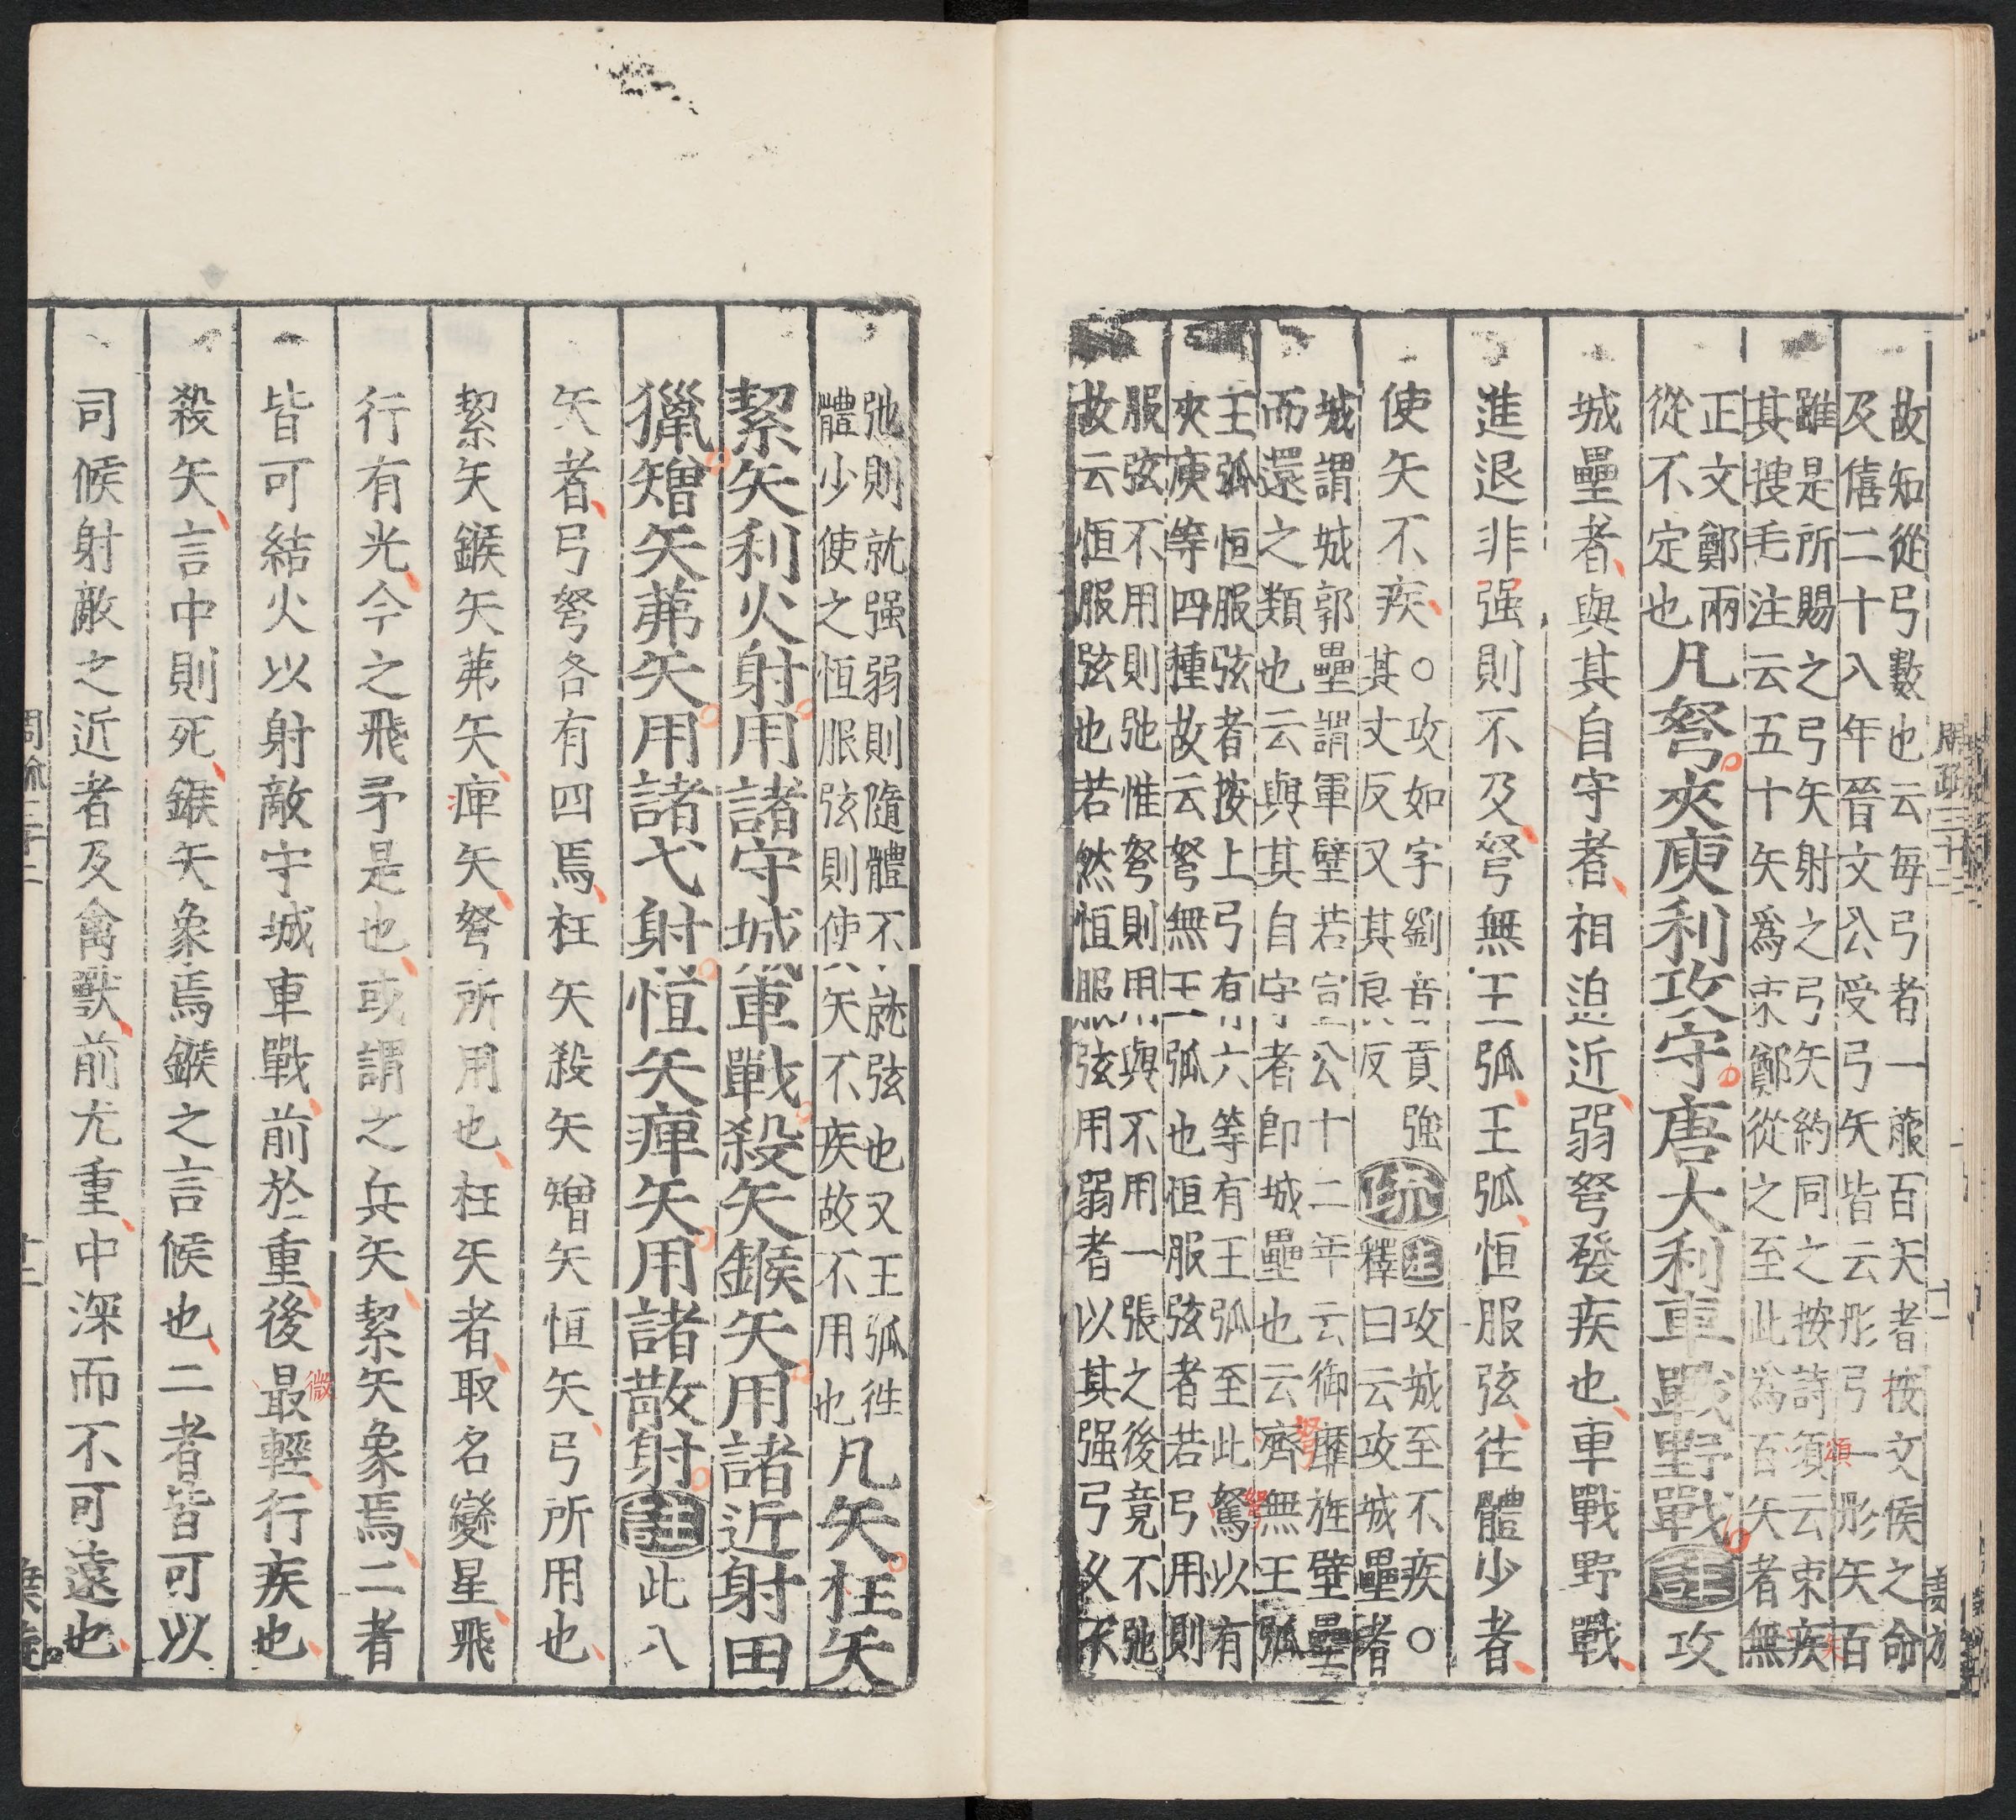 故知從弓數也云每弓者一箙百矢者按文侯之命
及僖二十八年晉文公受弓矢皆云彤弓一彤矢百
雖是所賜之弓矢射之弓矢約同之按詩須云束疾
其搜毛注云五十矢爲束鄭從之至此為百矢者無
正文鄭兩
從不定也
凡弩夾庾利攻守唐大利車戰野戰
註
攻
城壘者與其自守者相迫近弱弩發疾也車戰野戰
進退非强則不及弩無王弧王弧恒服弦往體少者
使矢不疾
○攻如字劉音貢強
其丈反又其良反
疏
註攻城至不疾○
釋曰云攻城壘者
城謂城郭壘謂軍壁若宣公十二年云御靡旌壁壘
而還之類也云與其自守者即城壘也云齊無王弧
王弧恒服弦者按上弓有六等有王弧至此駑以有
夾庾等四種故云弩無王弧也恒服弦者若弓用則
服弦不用則弛惟弩則用與不用一張之後竟不弛
故云恒服弦也若然恒服弦用弱者以其强弓久不
弛則就强弱則隨體不就弦也又王弧徃
體少使之恒服弦則使矢不疾故不用也
凡矢枉矢
絜矢利火射用諸守城車戰殺矢鍭矢用諸近射田
獵矰矢茀矢用諸弋射恒矢痺矢用諸散射
註
此八
矢者弓弩各有四焉枉矢殺矢矰矢恒矢弓所用也
絜矢鍭矢茀矢痺矢弩所用也枉矢者取名變星飛
行有光今之飛矛是也或謂之兵矢絜矢象焉二者
皆可結火以射敵守城車戰前於重後最輕行疾也
微
殺矢言中則死鍭矢象焉鍭之言候也二者皆可以
司候射敵之近者及禽獸前尤重中深而不可遠也